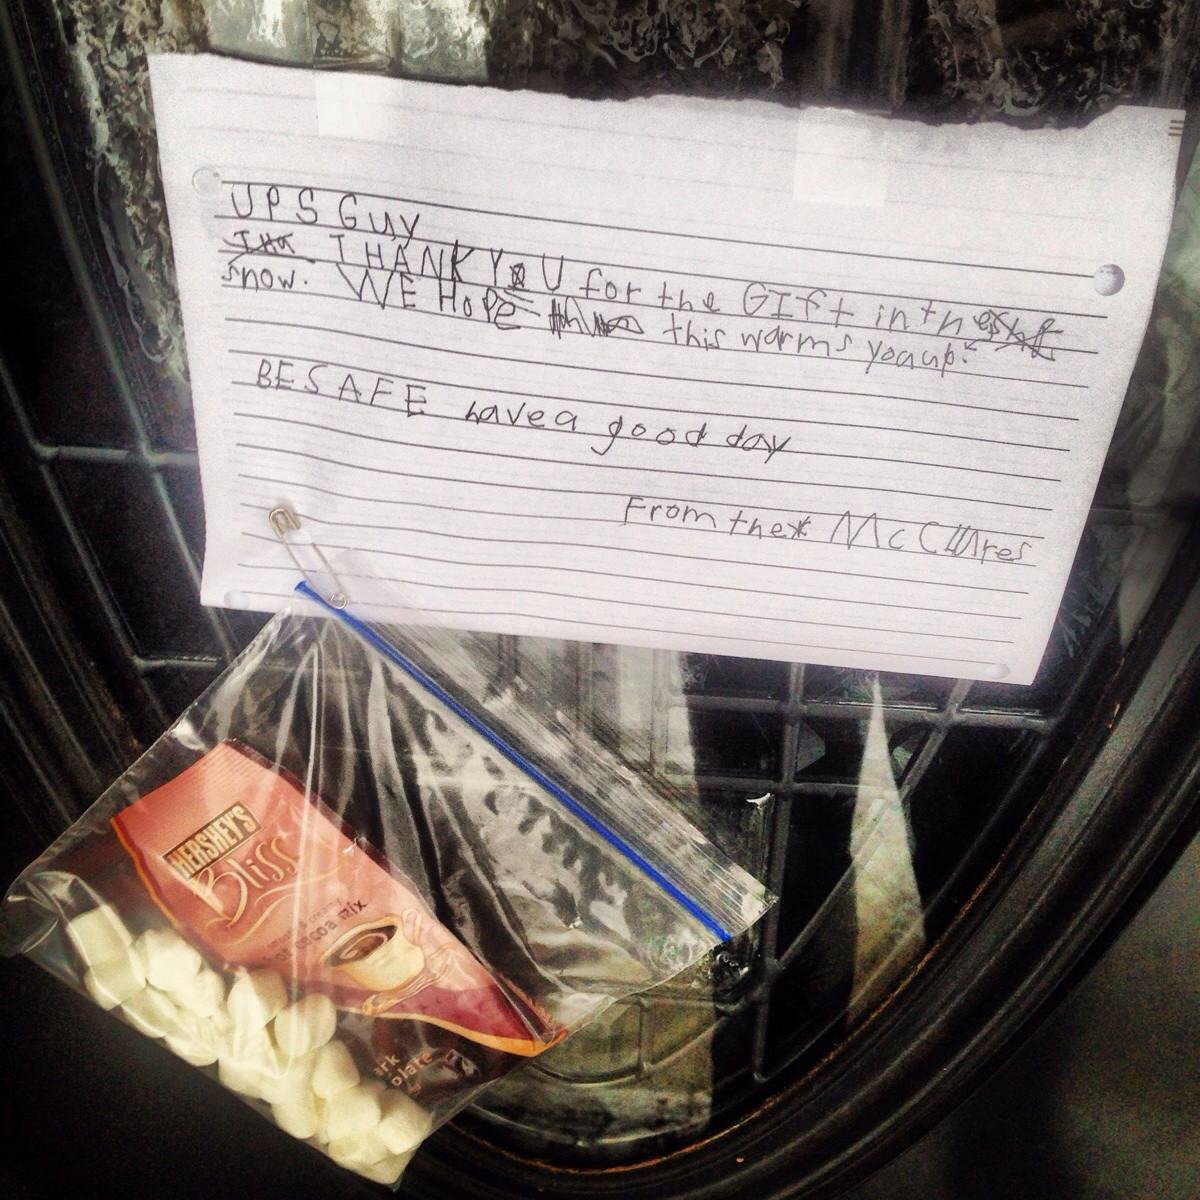 UPS Guy
THANK YOU for the GIft in the
snow. WE HoPe this warms you up.
BE SAFE have a good day
From the McClures
HERSHEY'S
Bliss
hot cocoa mix